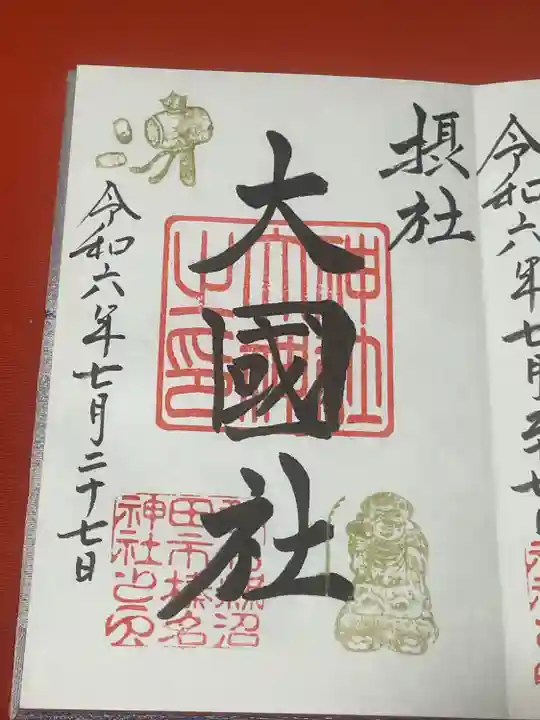 令和六年七月
摂社
大國社
令和六年七月二十七日
神社
之印
田市榛名
神社之印